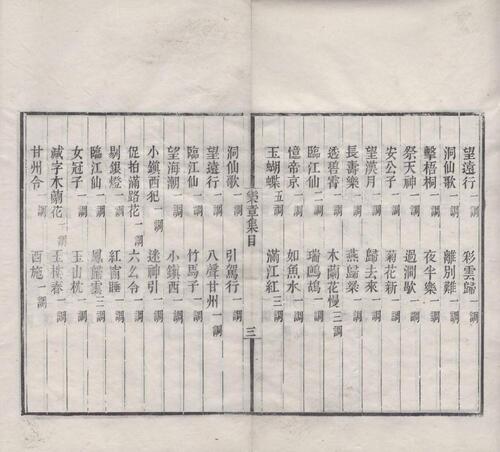 望遠行一調 彩雲歸一調
洞仙歌一調 離別難一調
擊梧桐一調 夜半樂一調
祭天神一調 過澗歇一調
安公子一調 菊花新一調
望漢月一調 歸去來一調
長壽樂一調 燕歸梁一調
透碧霄一調 木蘭花慢三調
臨江仙二調 瑞鷓鴣一調
憶帝京一調 如魚水一調
玉蝴蝶五調 滿江紅三調
樂章集目 三
洞仙歌一調 引駕行一調
望遠行一調 八聲甘州一調
臨江仙一調 竹馬子一調
望海潮一調 小鎮西一調
小鎮西犯一調 迷神引一調
促拍滿路花一調 六幺令一調
剔銀燈一調 紅窗睡一調
臨江仙一調 鳳歸雲三調
女冠子一調 玉山枕一調
減字木蘭花一調 玉樓春一調
甘州令一調 西施一調